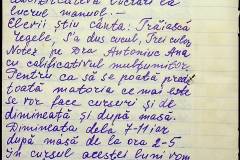 lucrul manual.
Elevii știu cânta: Trăiască
regele, S'a dus cucul, Trei culori,
Notez pe Dra Antoniuc Ana
cu calificativul mulțumitor.
Pentru ca să se poate preda
toată materia ce mai este
se vor face cursuri și de
dimineață și după masă.
Dimineața dela 7-11 iar
după masă de la ora 2-5
în cursul acestei luni vom